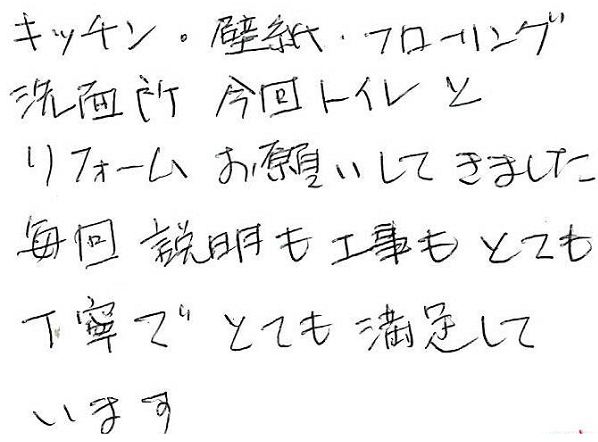 キッチン・壁紙・フローリング
洗面所 今回トイレと
リフォーム お願いしてきました
毎回 説明も工事もとても
丁寧で とても満足して
います